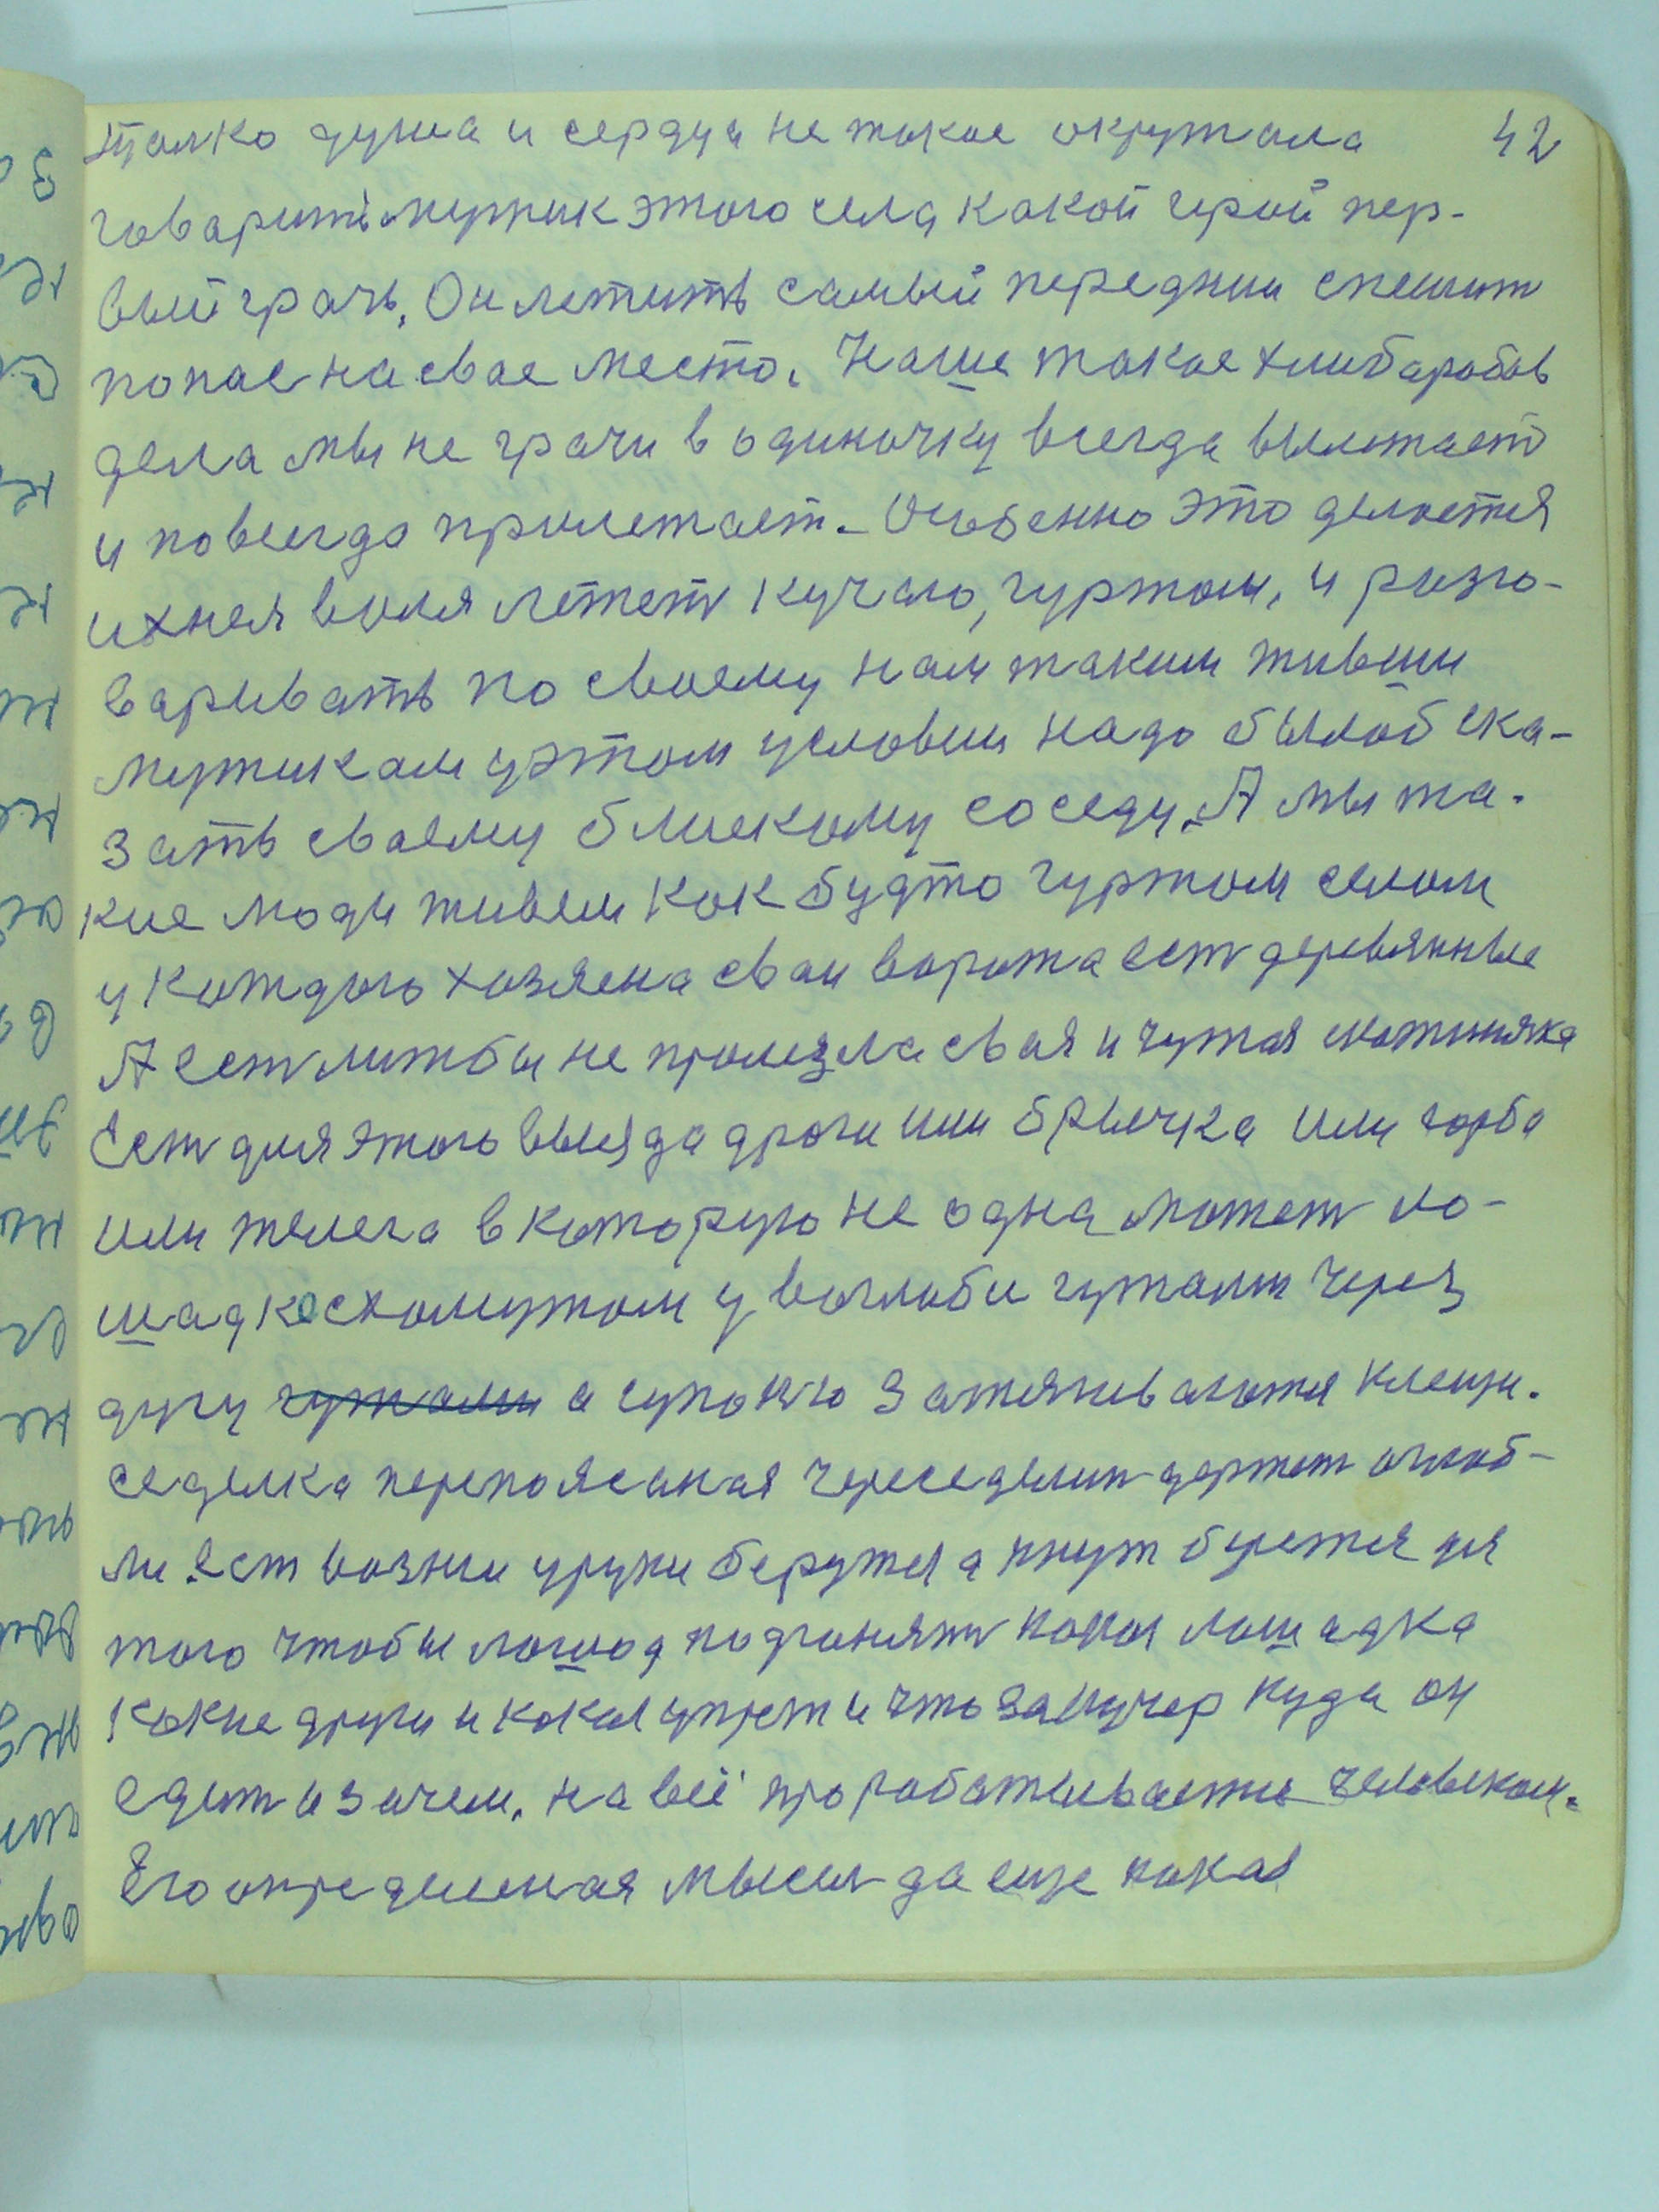 42
толко душа и сердца не такое окружала
говарить мужик этого села какой герой пер-
вый грачь. Он летить самый передний спешит
попас на свае место. Наше такое хлибаробов
дела мы не грачи в одиночку всегда вылетает
и повсегда прилетает. Особенно это делается
ихнея воля летет кучаю, гуртом, и разго-
варивать по своему нам таким живши
мужикам у этом условии надо былоб ска-
зать своему близкому соседу. А мы та-
кие люди живем как будто гуртом селом
у каждого хозяена сваи ворота ест деревянные
А ест литбы не пролезла свая и чужая скотиняка
Ест для этого выезда дроги или брычка или гарба
или телега в которую не одна может ло-
шадка с хомутом у воглоби гужами через
дугу гужами а супоню затягиваются клещи.
седелка перепоясаная череседелин держет оглоб-
ли. Ест возжи у руки берутся а кнут берется для
того чтобы лошод подганят какая лошадка
какие други и какая упреж и что за кучер куда он
едит и зачем. на всё прорабатывается человеком.
Его определеная мысел да еще какая